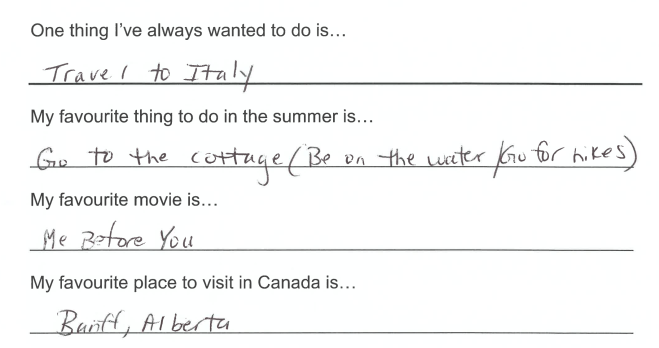 One thing I've always wanted to do is...
Travel to Italy
My favourite thing to do in the summer is...
Go to the cottage (Be on the water / Go for hikes)
My favourite movie is...
Me Before You
My favourite place to visit in Canada is...
Banff, Alberta